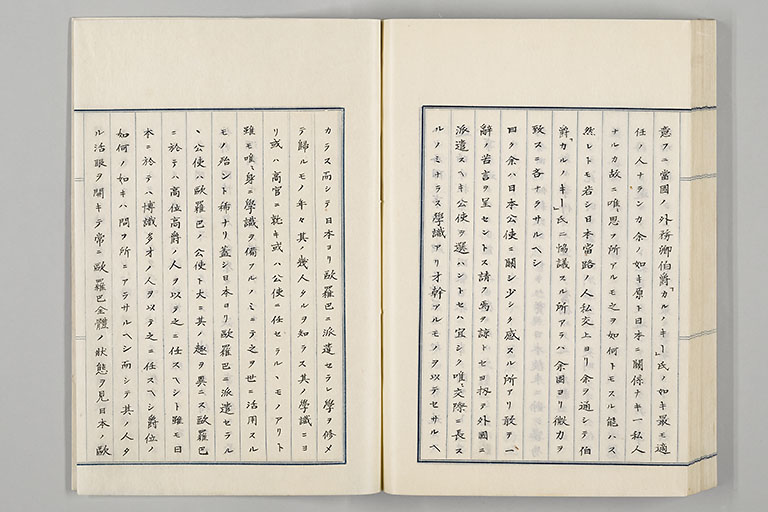 意フニ當國ノ外務卿伯爵「カルノキー」氏ノ如キ最モ適
任ノ人ナランカ余ノ如キ原ト日本ニ關係ナキ一私人
ナルカ故ニ唯思フ所アルモ之ヲ如何トモスル能ハス
然レトモ若シ日本當路ノ人私交上ヨリ余ヲ通シテ伯
爵「カルノキー」氏ニ協議スル所アラハ余固ヨリ微力ヲ
致スニ吝ナラサルヘシ
曰ク余ハ日本公使ニ關シ少シク感スル所アリ敢テ一
辭ノ苦言ヲ呈セントス請フ焉ヲ諒トセヨ扨テ外國ニ
派遣スヘキ公使ヲ選ハントセハ宜シク唯交際ニ長ス
ルノミナラス學識アリ才幹アルモノヲ以テセサルヘ
カラス而シテ日本ヨリ歐羅巴ニ派遣セラレ學ヲ修メ
テ歸ルモノ年々其ノ幾人タルヲ知ラス其ノ學識ニヨ
リ或ハ高官ニ乾キ或ハ公使ニ任セラルヽモノアリト
雖モ唯身ニ學識ヲ備フルノミニテ之ヲ世ニ活用スル
モノ殆ント稀ナリ蓋シ日本ヨリ歐羅巴ニ派遣セラル
ヽ公使ハ歐羅巴ノ公使ト大ニ其ノ趣ヲ異ニス歐羅巴
ニ於テハ高位高爵ノ人ヲ以テ之ニ任スヘシト雖モ日
本ニ於テハ博識多才ノ人ヲ以テ之ニ任スヘシ爵位ノ
如何ノ如キハ問フ所ニアラサルヘシ而シテ其ノ人タ
ル活眼ヲ開キテ常ニ歐羅巴全體ノ狀態ヲ見日本ノ歐